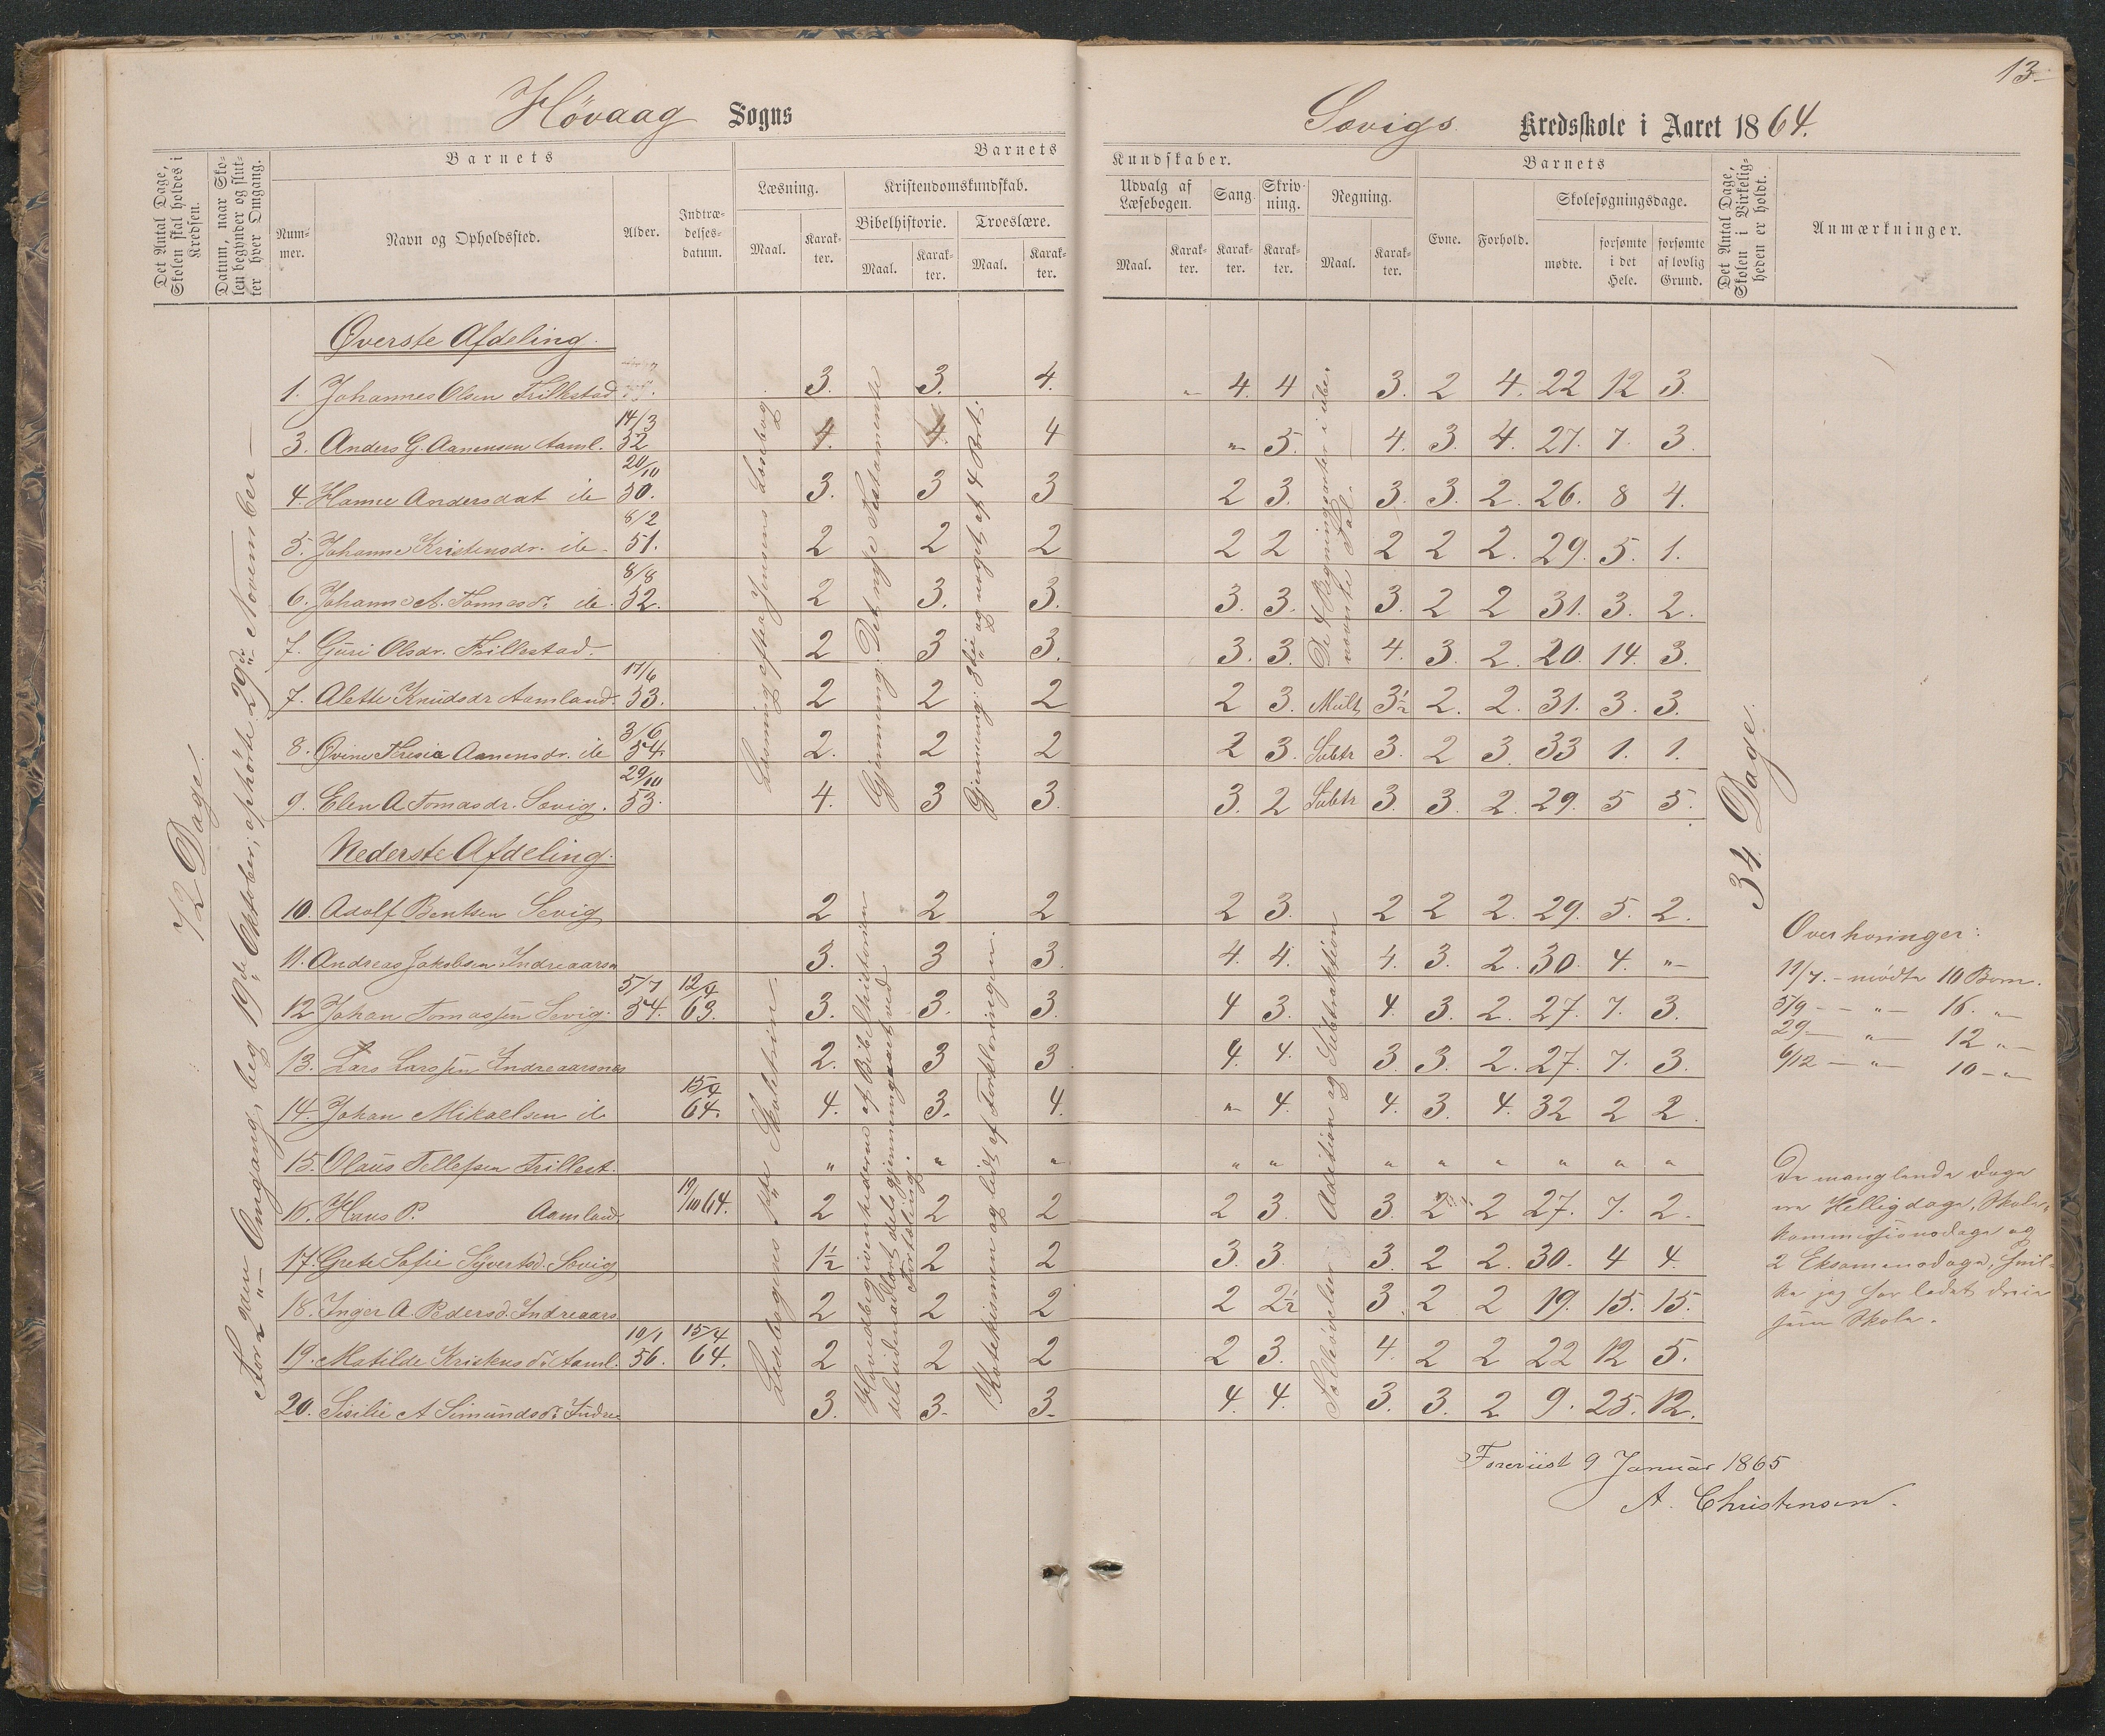 13.
Høvaag Sogns
Søvigs Kredsskole i Aaret 1864.
Det Antal Dage, Skolen skal holdes i Kredsen.
Datum, naar Skolen begynder og slutter hver Omgang.
Barnets
Nummer.
Navn og Opholdssted.
Alder.
Indtrædelsesdatum.
Barnets Kundskaber.
Læsning.
Maal.
Karakter.
Kristendomskundskab.
Bibelhistorie.
Maal.
Karakter.
Troeslære.
Maal.
Karakter.
Udvalg af Læsebogen.
Maal.
Karakter.
Sang.
Karakter.
Skrivning.
Karakter.
Regning.
Maal.
Karakter.
Barnets
Evne.
Forhold.
Skolesøgningsdage.
mødte.
forsømte i det Hele.
forsømte af lovlig Grund.
Det Antal Dage, Skolen i Virkeligheden er holdt.
Anmærkninger.
72 Dage.
For 2den Omgang, beg 19de Oktober; ophørte 29de November
Øverste Afdeling.
1. Johannes Olsen Trillestad 3. 3. 4. " 4. 4 3. 2 4. 22 12 3.
3. Anders G. Aanensen Aaml. 14/3 52 4. 4. 4 " 5. 4. 3. 4. 27. 7. 3
4. Hanne Andersdat de 20/10 50. 3. 3 3 2 3. 3. 3. 2. 26. 8 4.
5. Johanne Kristensdr. de 8/2 51. 2 2 2 2 2 2 2 2. 29. 5. 1.
6. Johanne A. Tomasdr. de 8/8 52. 2 3. 3. 3. 3. 3. 2 2 31. 3. 2.
7. Guri Olsdr. Trillestad. 2 3 3. 3. 3. 4. 3. 2. 20. 14. 3.
7. Alette Knudsdr Aamland. 17/6 53. 2 2 2 2 3. Mult 3½ 2. 2. 31. 3. 3.
8. Øvine Thresia Aanensdr. de 3/6 54. 2. 2 2 2 3. Subtr 3. 2 3. 33 1. 1.
9. Elen A Tomasdr. Søvig. 29/10 53. 4. 3 3. 3. 2 Subtr 3. 3. 2. 29. 5 5.
Læsning efter Jensens Læsebog
Gjennemg. Det nye Testamente
Gjennemg. 3die og noget af 4 Part.
De 4 Regningsarter i ube-
nævnte Tal.
34 Dage.
Nederste Afdeling.
10. Adolf Bentsen Sevig 2 2 2 2 3. 2 2 2. 29. 5. 2.
11. Andreas Jakobsen Indreaarsn 3. 3 3. 4. 4. 4. 3. 2. 30. 4. "
12 Johan Tomassen Sevig. 5/7 54. 12/4 63. 3. 3. 3. 4 3. 4. 3. 2. 27. 7. 3.
13. Lars Larssen Indreaarsnes 2. 3 3 4. 4. 3. 3. 2. 27. 7. 3.
14. Johan Mikaelsen de 64. 4. 3. 4. " 4. 4. 3. 4. 32 2 2.
15. Olaus Tellefsen Trillest. " " " " " " " " " " "
16. Hans P. Aamland 19/10 64. 2 2 2 2 3. 3. 2 2 27. 7. 2.
17. Grete Sofie Syvertsd. Søvig 1½ 2 2 3. 3. 3. 2 2. 30. 4 4.
18. Inger A. Pedersd. Indreaars 2 2 2 2 2½ 3. 2 2 19. 15. 15.
19. Matilde Kristensdr. Aaml. 10/1 56. 15/4 64. 2 2 2 2 3. 4. 2 2 22 12 5.
20. Sisilie A Simundsdr. Indre 3. 3. 3. 4. 4. 3. 3. 2 9. 25. 12.
Hovedbegivenhederne af Bibelhistorien
Katekismen og lidt af Forklaringen.
Addition og Subtraktion
Overhøringer:
11/7. – mødte 10 Børn.
5/9 – " – 16. "
29 – " – 12 "
6/12 – " – 10 – "
De manglende Dage
ere Helligdage, Skole-
kommissionsdage og
2 Eksamensdage, hvil-
ke jeg har ladet dreie
som Skole.
Foreviist 9 Januar 1865
A. Christensen.